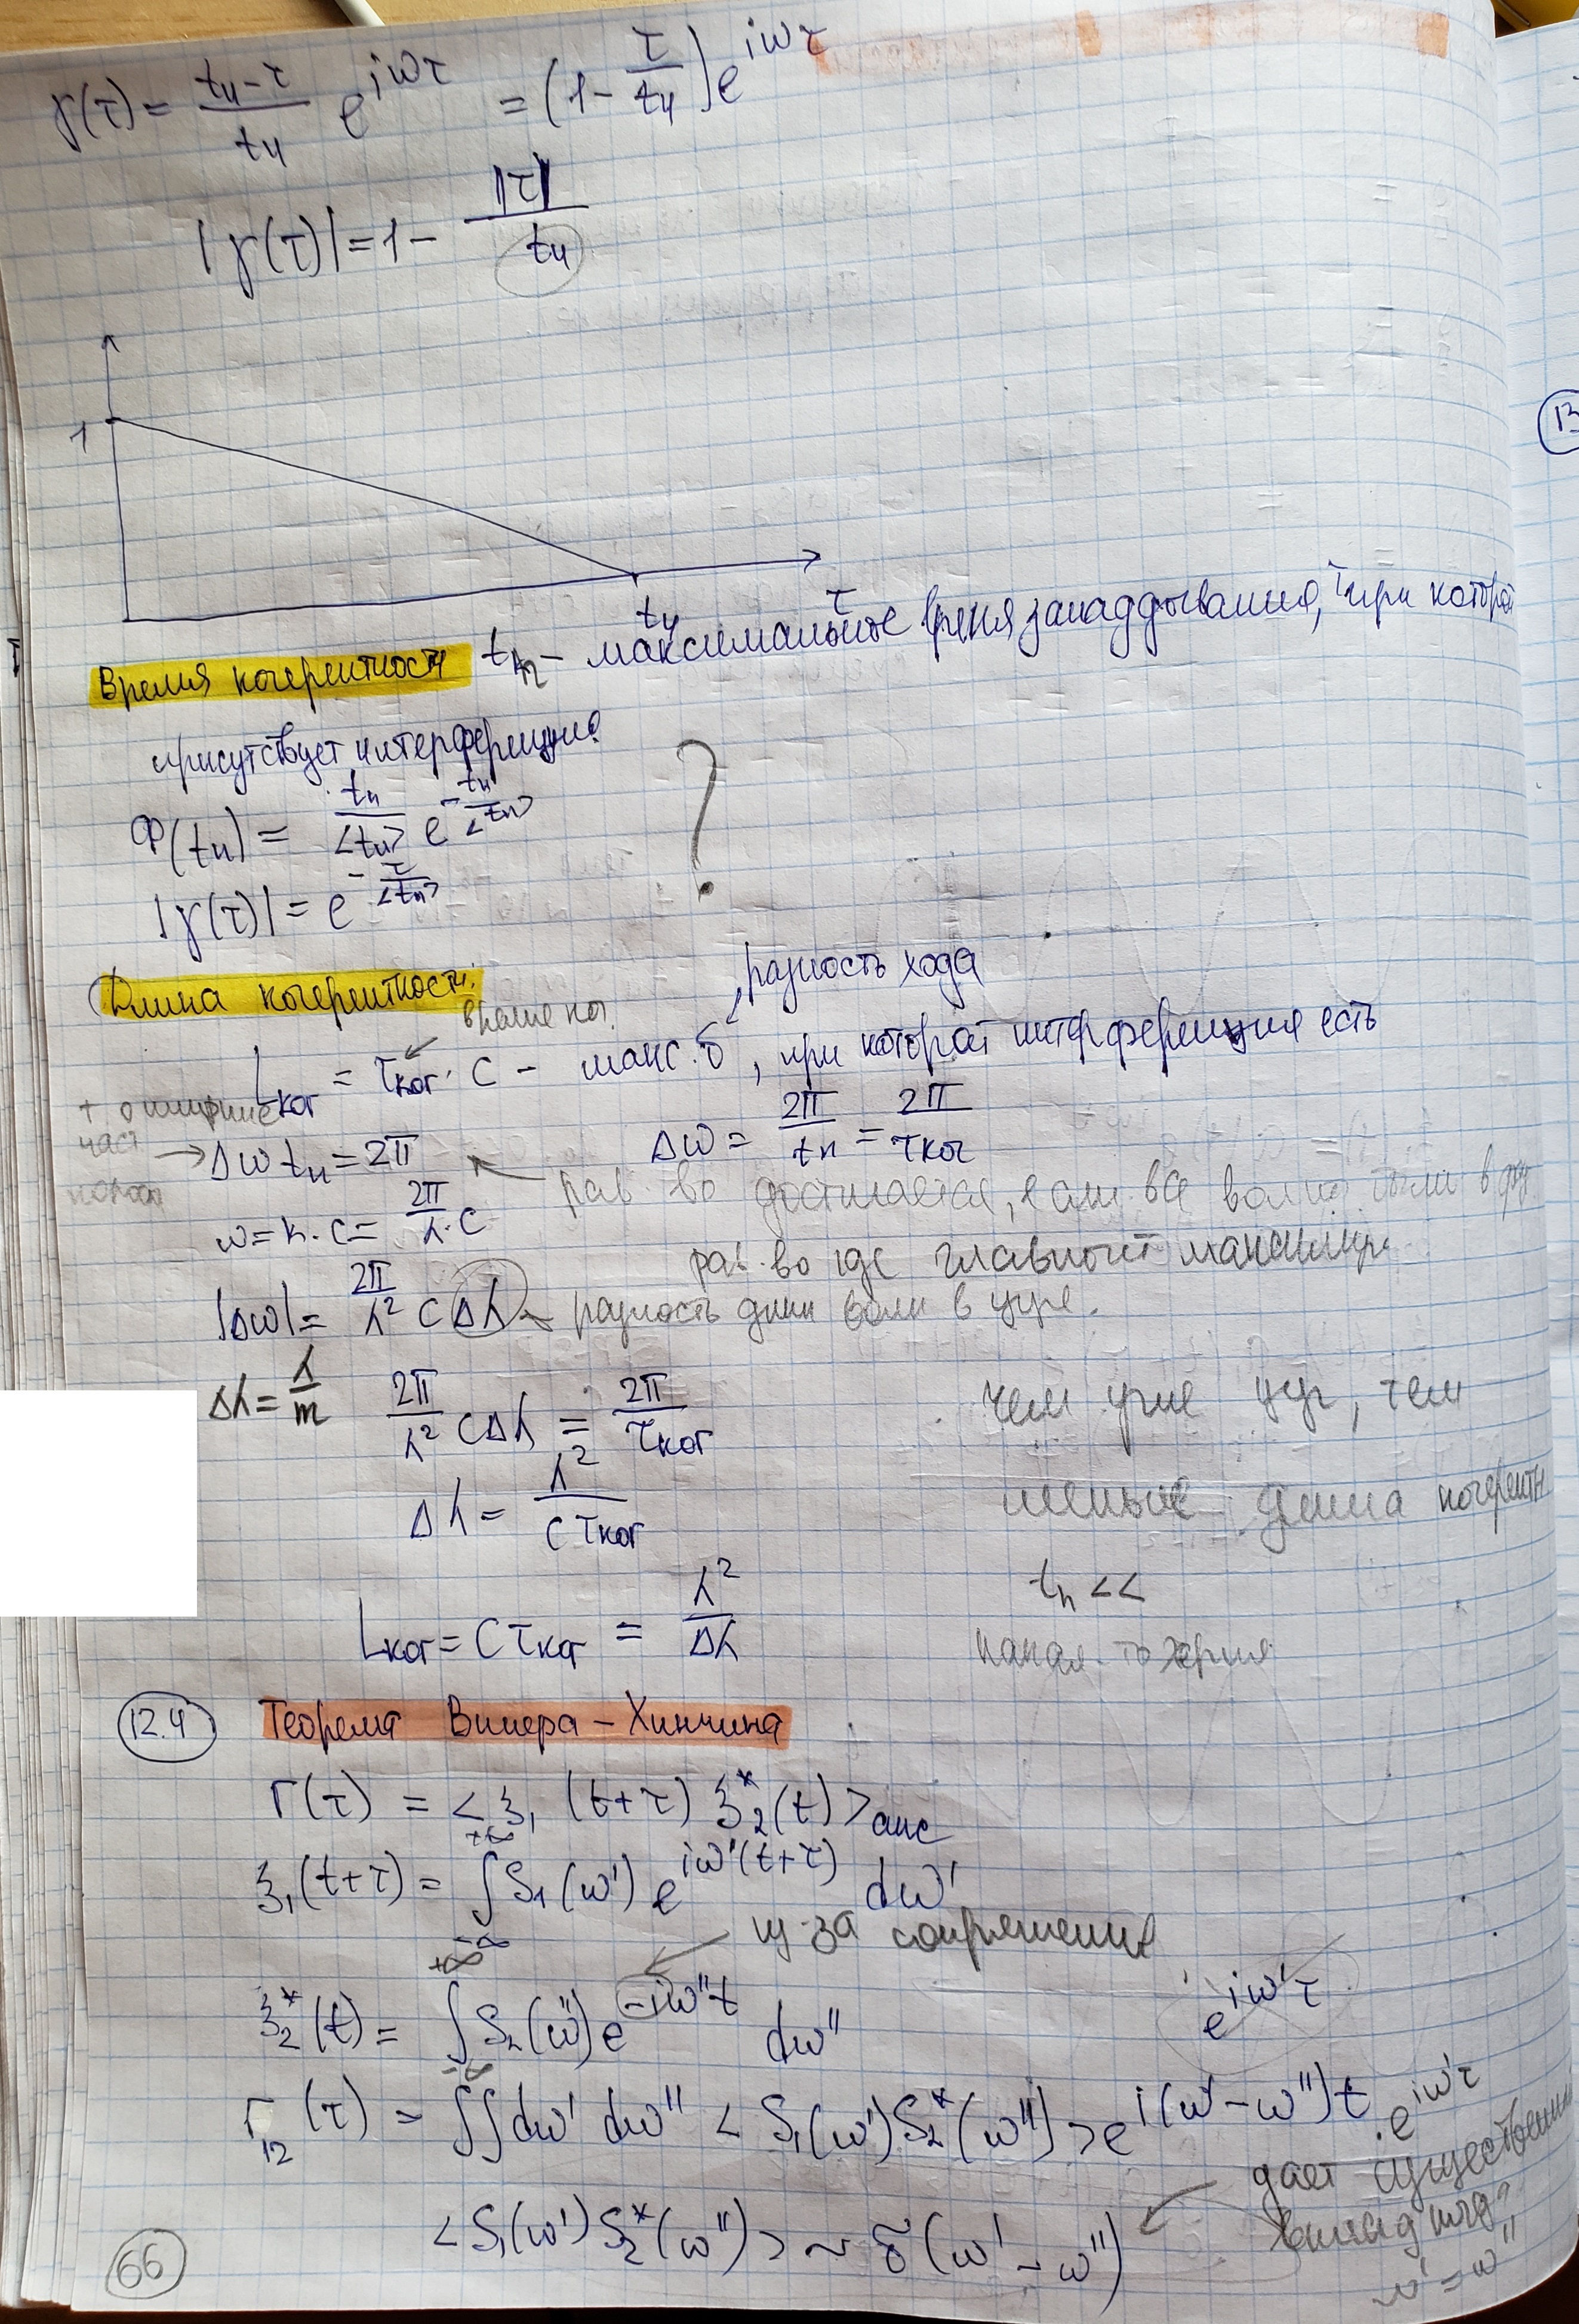 γ(τ) = (tц - τ)/tц e^{iωτ} = (1 - τ/tц) e^{iωτ}
|γ(τ)| = 1 - |τ|/tц
1
tц τ
13
Время когерентности tц - максимальное время запаздывания, при которой
присутствует интерференция.
Φ(tц) = tц/<tц> e^{-tц/<tц>}
?
|γ(τ)| = e^{-τ/<tц>}
Длина когерентности:
разность хода
время ког.
Lког = τког · c - макс. δ, при которой интерференция есть
+ о ширине
част
→ Δω tц = 2π
Δω = 2π/tц = 2π/τког
рав-во достигается, если все волны были в
ω = k · c = 2π/λ · c
рав-во где главного максимума
|Δω| = 2π/λ² c Δλ разность длин волн в цуге.
Δλ = λ/m
2π/λ² c Δλ = 2π/τког
чем уже цуг, тем
Δλ = λ²/(c τког)
меньше длина когерентн
tц <<
Lког = c τког = λ²/Δλ
какая-то херня
12.4 Теорема Винера - Хинчина
Γ(τ) = <ξ₁(t+τ) ξ₂*(t)>анс
ξ₁(t+τ) = ∫_{-∞}^{+∞} S₁(ω') e^{iω'(t+τ)} dω'
из-за сопряжения
ξ₂*(t) = ∫_{-∞}^{+∞} S₂(ω'') e^{-iω''t} dω''
e^{iω'τ}
Γ₁₂(τ) = ∫∫ dω' dω'' <S₁(ω') S₂*(ω'')> e^{i(ω'-ω'')t} · e^{iω'τ}
дает существенный
<S₁(ω') S₂*(ω'')> ~ δ(ω' - ω'')
вклад при
ω' = ω''
66